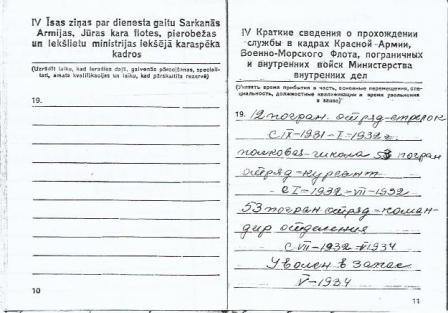 IV Īsas ziņas par dienesta gaitu Sarkanās
Armijas, Jūras kara flotes, pierobežas
un Iekšlietu ministrijas iekšējā karaspēka
kadros
(Uzrādīt laiku, kad ieradies daļā, galvenās pārcelšanas, speciali-
tati, amata kvalifikacijas un laiku, kad pārskaitīts rezervē)
19.
10
IV Краткие сведения о прохождении
службы в кадрах Красной Армии,
Военно-Морского Флота, пограничных
и внутренних войск Министерства
внутренних дел
(Указать время прибытия в часть, основные перемещения, спе-
циальность, должностные квалификации и время увольнения
в запас)
19. 12 погран. отряд-стрелок
с IX-1931-I-1932 г.
полковая школа 53 погран
отряд-курсант
- с I-1932-VII-1932
53 погран отряд-коман-
дир отделения
с VII-1932 1934
Уволен в запас
V-1934
11